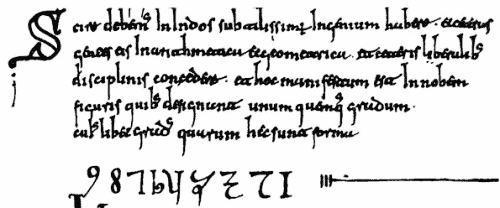 Scire debem' in Indos subtilissimum ingenium habere. et ceteras
gentes eis in arithmetica et geometrica. et ceteris liberalib'
disciplinis concedere. et hoc manifestum est in nobem
figuris quib' designant unum quemq' gradum.
cuiuslibet grad'. quarum hec sunt forma
9 8 7 6 5 4 3 2 1